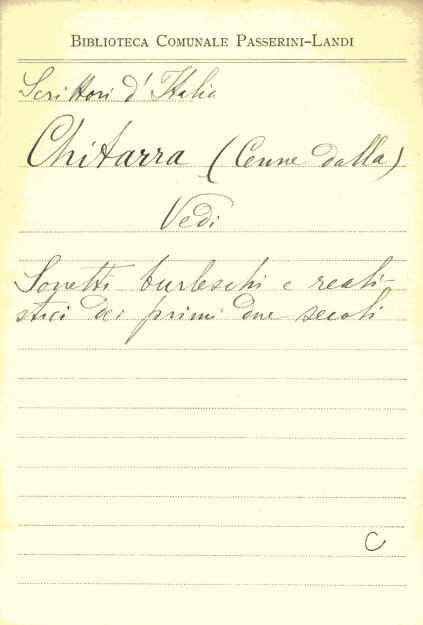 Biblioteca Comunale Passerini-Landi
Scrittori d'Italia
Chitarra (Cenne dalla)
Vedi
Sonetti burleschi e reali-
stici dei primi due secoli
C